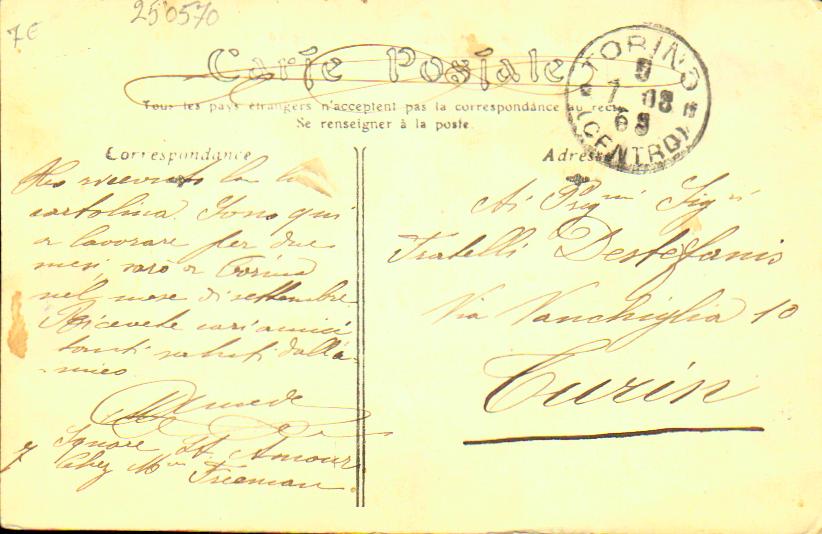 7€
250570
Carte Postale
Tous les pays étrangers n'acceptent pas la correspondance au recto
Se renseigner à la poste.
TORINO
9
7 - 08
(CENTRO)
Correspondance
Adresse
Ho ricevuto la
cartolina. Sono qui
a lavorare per due
mesi, sarò a Torino
nel mese di settembre
Ricevete cari amici
tanti saluti dall'a-
mico
Amede
7 Square St Amour
Chez Mr Freeman
Ai Preg.mi Sig.ri
Fratelli Destefanis
Via Vanchiglia 10
Turin